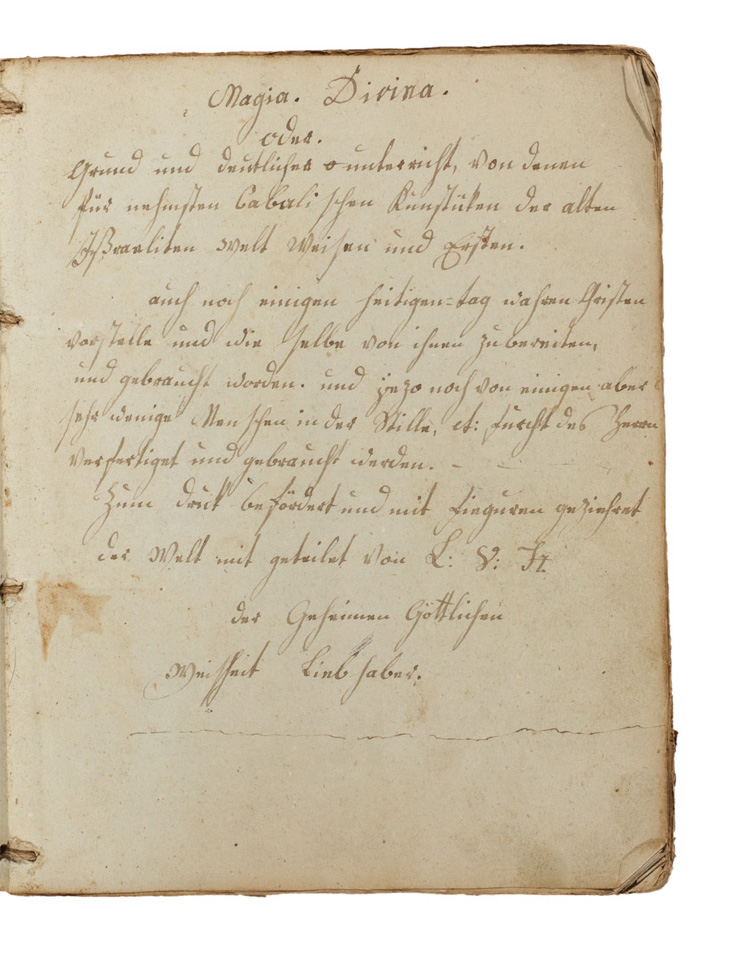 Magia. Divina.
oder.
Grund und deutlicher unterricht, von denen
für nehmsten Cabali schen Kunstüken der alten
Ißraeliten welt Weisen und Ersten.
auch noch einigen heitigen=tag wahren Christen
vorstelle und wie selbe von ihnen zubereiten,
und gebraucht worden. und jezo noch von einigen aber
sehr wenige Menschen in der Stille, et: furcht des Herrn
verfertiget und gebraucht werden.
Zum druk befördert und mit fieguren geziehret
der Welt mit geteilet von L: V: H
der Geheimen Göttlichen
Weisheit Liebhaber.